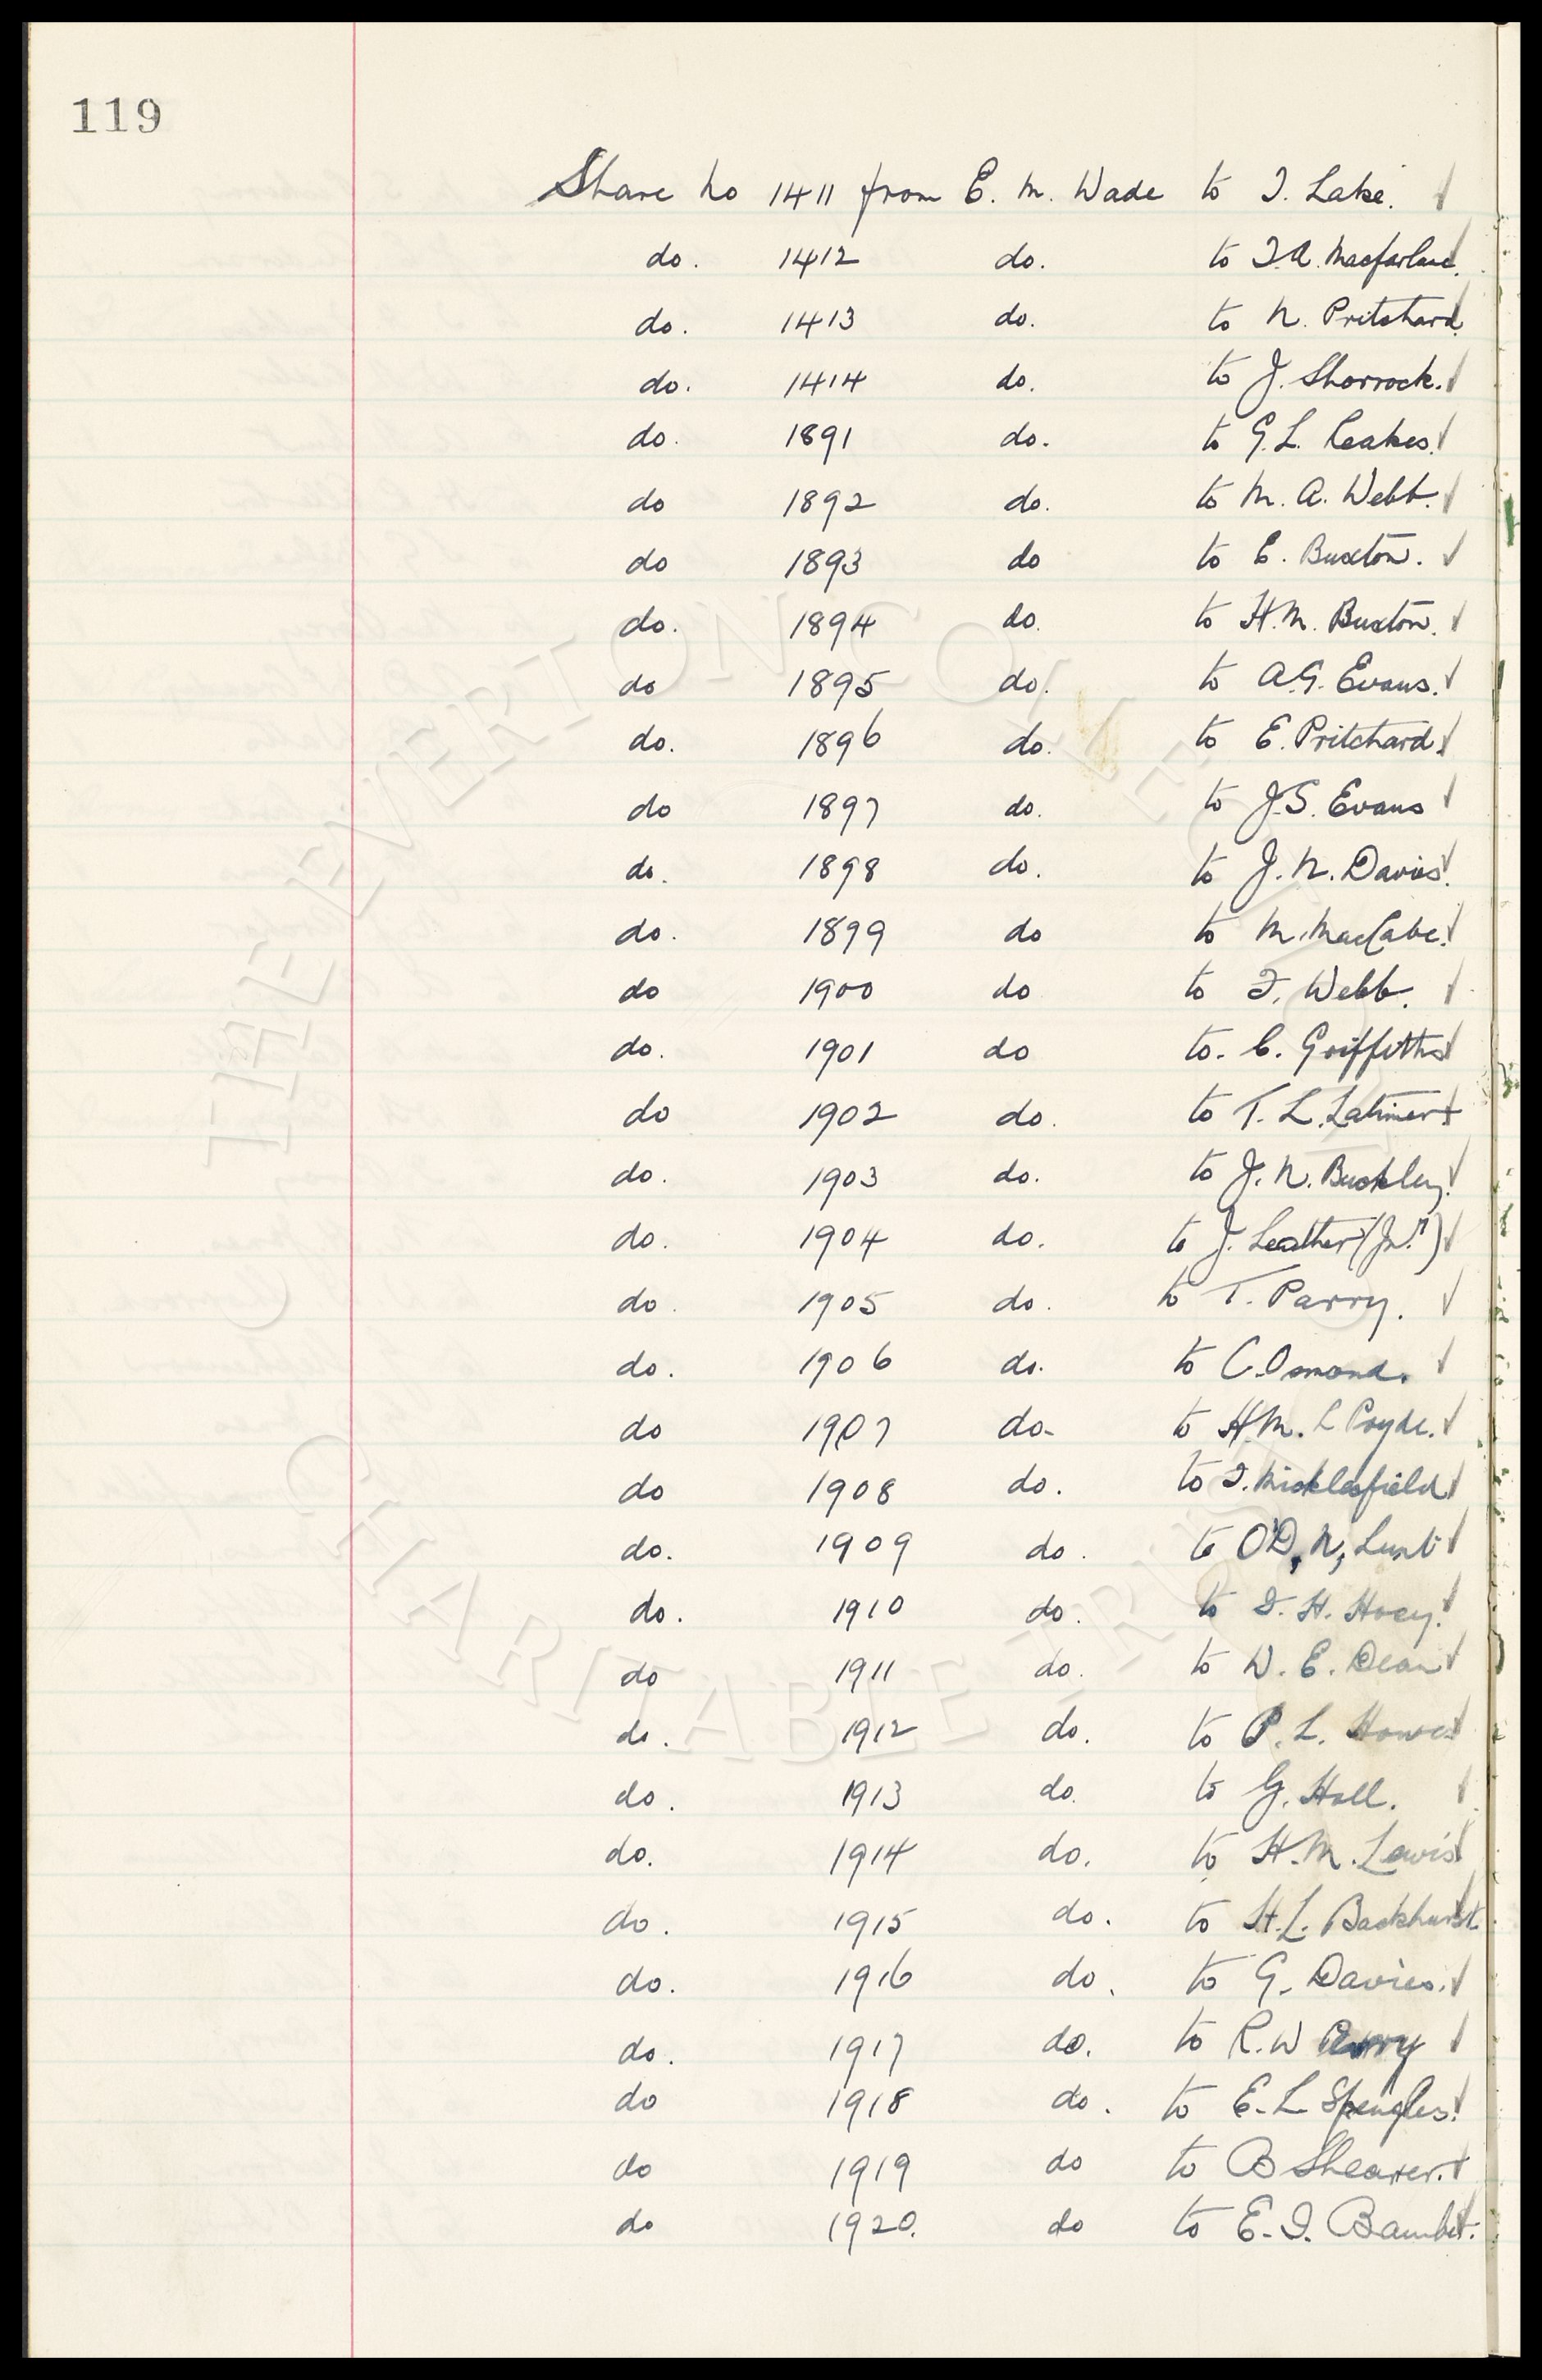 119
Share No 1411 from E. M. Wade to I. Lake.
do. 1412 do. to I.A. Macfarland.
do. 1413 do. to N. Pritchard.
do. 1414 do. to J. Shorrock.
do. 1891 do. to G.L. Leakes.
do 1892 do. to M. A. Webb.
do 1893 do to E. Buxton.
do. 1894 do. to H.M. Buxton.
do 1895 do. to A.G. Evans.
do. 1896 do. to E. Pritchard.
do 1897 do. to J.S. Evans
do. 1898 do. to J. N. Davies.
do. 1899 do to M. MacCabe.
do 1900 do to I. Webb.
do. 1901 do to. C. Griffiths
do 1902 do. to T. L. Latimer
do. 1903 do. to J. N. Buckley.
do. 1904 do. to J. Leather (Jnr.)
do. 1905 do. to T. Parry.
do. 1906 do. to C. Osmond.
do 1907 do- to H.M. L Poyde.
do 1908 do. to I. Micklesfield
do. 1909 do. to O'D. N. Lunt
do. 1910 do. to I. H. Hoey.
do 1911 do. to W. E. Dean
do. 1912 do. to P. L. Howes
do. 1913 do. to G. Hall.
do. 1914 do. to H. M. Lewis
do. 1915 do. to H.L. Backhurst.
do. 1916 do. to G. Davies.
do. 1917 do. to R. W
do 1918 do. to E. L Spengles.
do 1919 do to B Shearer.
do 1920. do to E. I. Bamber.
THE EVERTON COLLECTION
CHARITABLE TRUST